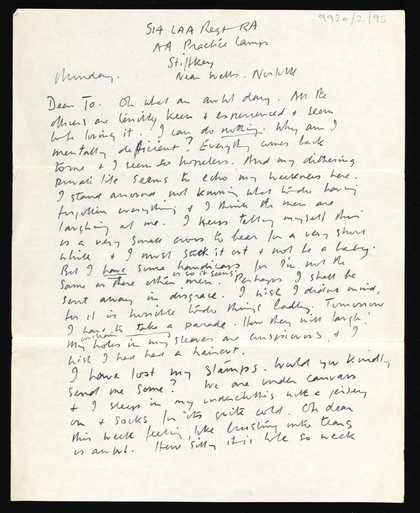 9920/2/95
514 LAA Regt RA
AA Practice Camps
Stiffkey
Near Wells. Norfolk
Monday.
Dear To. Oh what an awful day. All the
officers are terribly keen & experienced & seem
to be loving it. I can do nothing. Why am I
mentally deficient? Everything comes back
to me & I seem so hopeless. And my dithering
private life seems to echo my weakness here.
I stand around not knowing what to do having
forgotten everything & I think the men are
laughing at me. I keep telling myself this
is a very small cross to bear for a very short
while & I must stick it out & not be a baby.
But I have some handicaps for I'm not the
or so it seems
same as these other men. Perhaps I shall be
sent away in disgrace. I wish I didnt mind,
for it is horrible to do things badly. Tomorrow
I have to take a parade. How they will laugh!
My holes in my sleeves are conspicuous, & I
wish I had had a haircut.
I have lost my stamps. Would you kindly
send me some? We are under canvas
& I sleep in my underclothes with a jersey
on & socks for its quite cold. Oh dear
this week feeling like bursting into tears
is awful. How silly it is to be so weak